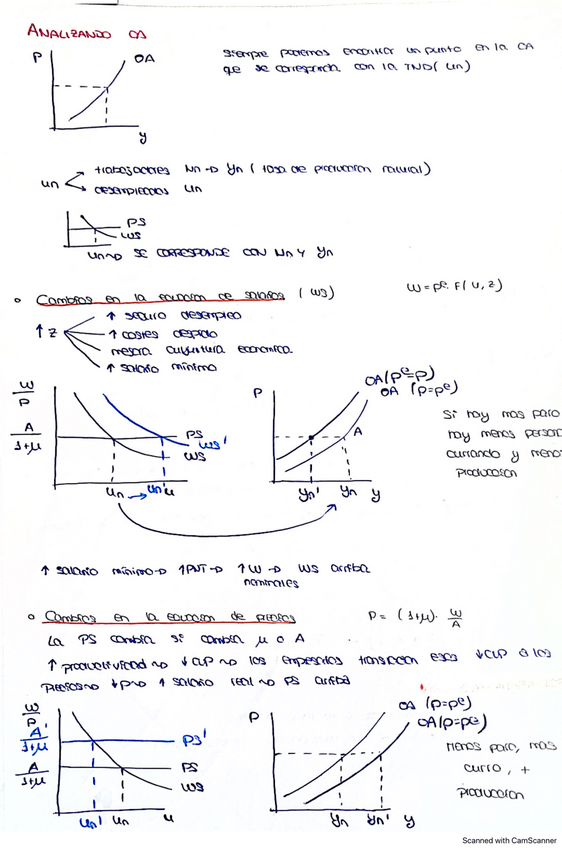 ANALIZANDO OA
P
OA
y
Siempre podemos encontrar un punto en la OA
que se corresponda con la TND (un)
un
trabajadores Nn → Yn (tasa de produccion natural)
desempleados un
PS
WS
un → SE CORRESPONDE CON Nn Y Yn
Cambios en la ecuacion de salarios (WS)
W = Pe. F(u, z)
↑ z
↑ seguro desempleo
↑ costes despido
mejora coyuntura economica
↑ salario minimo
W/P
A/1+μ
PS
WS'
WS
un → un' u
P
OA (Pe=P)
OA (P=Pe)
A
yn' yn y
Si hay mas paro
hay menos person
currando y menos
produccion
↑ salario minimo → ↑PNT → ↑W → WS arriba
nominales
Cambios en la ecuacion de precios
P = (1+μ). W/A
La PS cambia si cambia μ o A
↑ productividad → ↓CLP → los empresarios transmiten esos ↓CLP a los
precios → ↓P → ↑ salario real → PS arriba
W/P
A'/1+μ
A/1+μ
PS'
PS
WS
un' un u
P
OA (P=Pe)
OA (P=Pe)
yn yn' y
Menos paro, mas
curro, +
produccion
Scanned with CamScanner